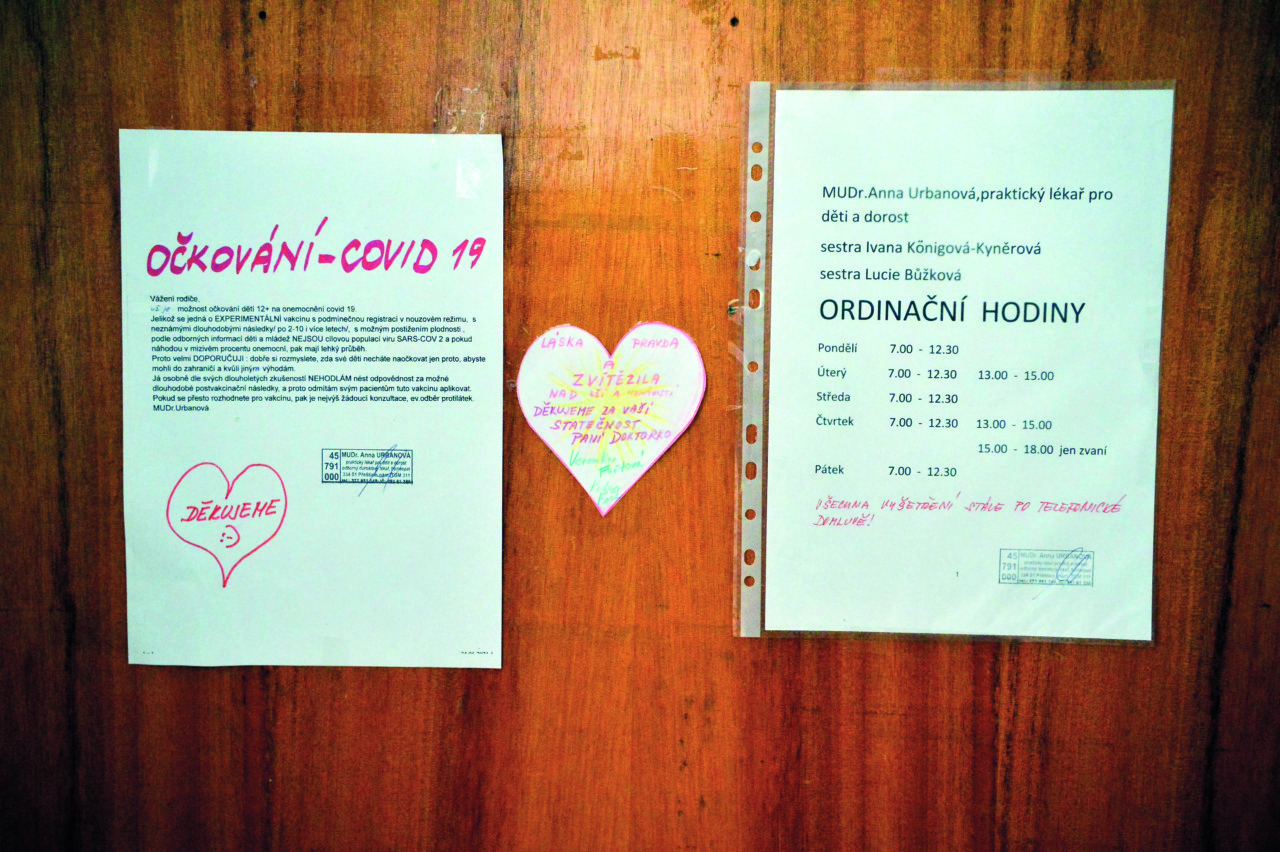 OČKOVÁNÍ-COVID 19
Vážení rodiče,
už je možnost očkování dětí 12+ na onemocnění covid 19.
Jelikož se jedná o EXPERIMENTÁLNÍ vakcínu s podmínečnou registrací v nouzovém režimu, s
neznámými dlouhodobými následky/ po 2-10 i více letech/, s možným postižením plodnosti ,
podle odborných informací děti a mládež NEJSOU cílovou populací viru SARS-COV 2 a pokud
náhodou v mizivém procentu onemocní, pak mají lehký průběh.
Proto velmi DOPORUČUJI : dobře si rozmyslete, zda své děti necháte naočkovat jen proto, abyste
mohli do zahraničí a kvůli jiným výhodám.
Já osobně dle svých dlouholetých zkušeností NEHODLÁM nést odpovědnost za možné
dlouhodobé postvakcinační následky, a proto odmítám svým pacientům tuto vakcínu aplikovat.
Pokud se přesto rozhodnete pro vakcínu, pak je nejvýš žádoucí konzultace, ev.odběr protilátek.
MUDr.Urbanová
45 MUDr. Anna URBANOVÁ
791 praktický lékař pro děti a dorost
000
DĚKUJEME
:-)
LÁSKA PRAVDA
A
ZVÍTĚZILA
NAD LŽÍ A
DĚKUJEME ZA VAŠI
STATEČNOST
PANÍ DOKTORKO
MUDr.Anna Urbanová,praktický lékař pro
děti a dorost
sestra Ivana Kőnigová-Kyněrová
sestra Lucie Bůžková
ORDINAČNÍ HODINY
Pondělí 7.00 - 12.30
Úterý 7.00 - 12.30 13.00 - 15.00
Středa 7.00 - 12.30
Čtvrtek 7.00 - 12.30 13.00 - 15.00
15.00 - 18.00 jen zvaní
Pátek 7.00 - 12.30
VŠECHNA VYŠETŘENÍ STÁLE PO TELEFONICKÉ
DOMLUVĚ!
45 MUDr. Anna URBANOVÁ
791 praktický lékař pro děti a dorost
000
1